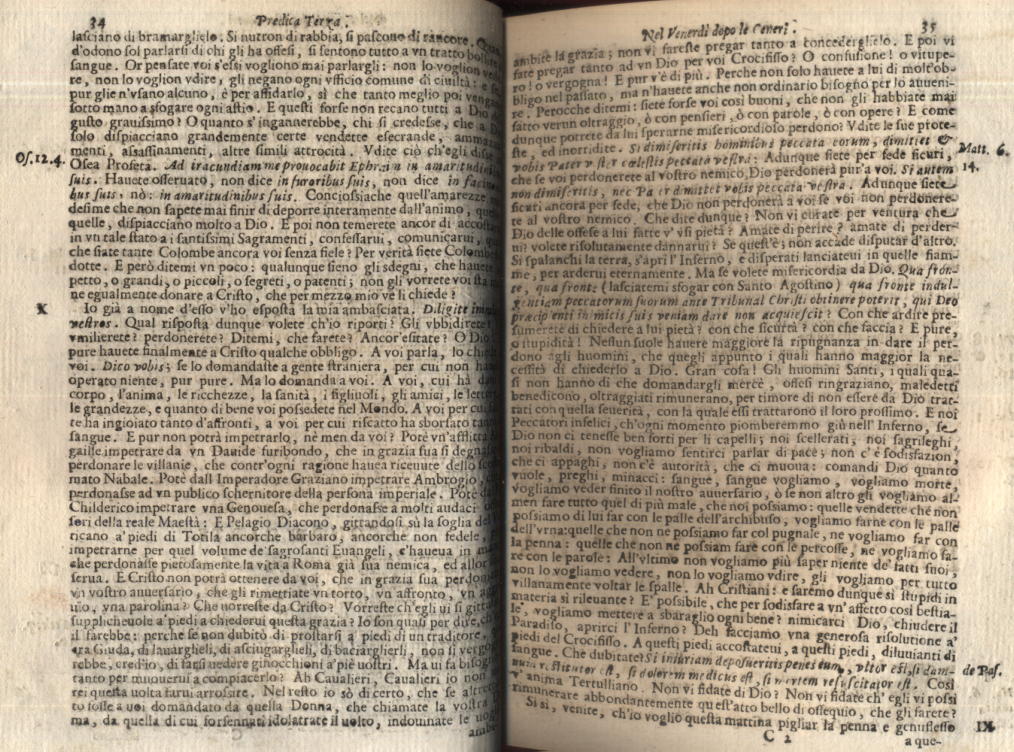 34 Predica Terza.
lasciano di bramarglielo. Si nutron di rabbia, si pascono di rancore.
d'odono sol parlarsi di chi gli ha offesi, si sentono tutto a vn tratto bollire
sangue. Or pensate voi s'essi vogliono mai parlargli: non lo voglion
re, non lo voglion vdire, gli negano ogni vfficio comune di ciuiltà: e
pur glie n'vsano alcuno, è per affidarlo, sì che tanto meglio poi vengan
sotto mano a sfogare ogni astio. E questi forse non recano tutti a Dio
gusto grauissimo? O quanto s'ingannerebbe, chi si credesse, che a D
solo dispiacciano grandemente certe vendette esecrande, amma
menti, assassinamenti, altre simili attrocità. Vdite ciò ch'egli disse
Os. 12. 4. Osea Profeta. Ad iracundiam me prouocabit Ephraim in amaritudinibus
suis. Hauete osseruato, non dice in furoribus suis, non dice in facino
bus suis, nò: in amaritudinibus suis. Conciossiache quell'amarezze
desime che non sapete mai finir di deporre interamente dall'animo,
quelle, dispiacciono molto a Dio. E poi non temerete ancor di accosta
in vn tale stato a i santissimi Sagramenti, confessarui, comunicarui,
che siate tante Colombe ancora voi senza fiele? Per verità siete Colombe
dotte. E però ditemi vn poco: qualunque sieno gli sdegni, che hauete
petto, o grandi, o piccoli, o segreti, o patenti; non gli vorrete voi sta
ne egualmente donare a Cristo, che per mezzo mio ve li chiede?
X Io già a nome d'esso v'ho esposta la mia ambasciata. Diligite inim
vestros. Qual risposta dunque volete ch'io riporti? Gli vbbidirete
vmilierete? perdonerete? Ditemi, che farete? Ancor'esitate? O Dio
pure hauete finalmente a Cristo qualche obbligo. A voi parla, lo chie
voi. Dico vobis; se lo domandaste a gente straniera, per cui non ha
operato niente, pur pure. Ma lo domanda a voi. A voi, cui hà da
corpo, l'anima, le ricchezze, la sanità, i figliuoli, gli amici, le lette
le grandezze, e quanto di bene voi possedete nel Mondo. A voi per cui
te ha ingoiato tanto d'affronti, a voi per cui riscatto ha sborsato tan
sangue. E pur non potrà impetrarlo, nè men da voi? Potè vn'afflitta
gaille impetrare da vn Dauide furibondo, che in grazia sua si degna
perdonare le villanie, che contr'ogni ragione hauea riceuute dello
mato Nabale. Potè dall'Imperadore Graziano impetrare Ambrogio,
perdonasse ad vn publico schernitore della persona imperiale. Potè da
Childerico impetrare vna Genouefa, che perdonasse a molti audaci
sori della reale Maestà: E Pelagio Diacono, gittandosi sù la soglia del
ticano a' piedi di Totila ancorche barbaro, ancorche non fedele,
impetrarne per quel volume de' sagrosanti Euangeli, c'haueua in
che perdonasse pietosamente la vita a Roma già sua nemica, ed allor
serua. E Cristo non potrà ottenere da voi, che in grazia sua perdon
vn vostro auuersario, che gli rimettiate vn torto, vn'affronto, vn
uio, vna parolina? Che vorreste da Cristo? Vorreste ch'egli ui si gittas
supplicheuole a' piedi a chiederui questa grazia? Io son quasi per dire, ch
il farebbe: perche se non dubitò di prostarsi a' piedi di un traditore,
era Giuda, di lauarglieli, di asciugarglieli, di baciarglierli, non si vergo
rebbe, cred'io, di farsi uedere ginocchioni a' piè uostri. Ma ui fa bisog
tanto per muouerui a compiacerlo? Ah Caualieri, Caualieri io non
rei questa uolta farui arrossire. Nel resto io sò di certo, che se altret
to fosse a uoi domandato da quella Donna, che chiamate la vostra
ma, da quella di cui forsennati idolatrate il uolto, indouinate le uo
ambi
Nel Venerdì dopo le Ceneri. 35
ambite la grazia; non vi fareste pregar tanto a concederglielo. E poi vi
fate pregar tanto ad vn Dio per voi Crocifisso? O confusione! o vitupe-
ro! o vergogna! E pur v'è di più. Perche non solo hauete a lui di molt'ob-
bligo nel passato, ma n'hauete anche non ordinario bisogno per lo auueni-
re. Perocche ditemi: siete forse voi così buoni, che non gli habbiate mai
fatto verun oltraggio, ò con pensieri, ò con parole, ò con opere? E come
dunque potrete da lui sperarne misericordioso perdono? Vdite le sue prote-
ste, ed inorridite. Si dimiseritis hominibus peccata eorum, dimittet & Matt. 6.
vobis Pater vester cælestis peccata vestra: Adunque siete per fede sicuri, 14.
che se voi perdonerete al vostro nemico, Dio perdonerà pur'a voi. Si autem
non dimiseritis, nec Pater dimittet vobis peccata vestra. Adunque siete
sicuri ancora per fede, che Dio non perdonerà a voi se voi non perdonere-
te al vostro nemico. Che dite dunque? Non vi curate per ventura che
Dio delle offese a lui fatte v' vsi pietà? Amate di perire? amate di perder-
ui? volete risolutamente dannarui? Se quest'è; non accade disputar d'altro.
Si spalanchi la terra, s'apri l'Inferno, e disperati lanciateui in quelle fiam-
me, per arderui eternamente. Ma se volete misericordia da Dio. Qua fron-
te, qua fronte (lasciatemi sfogar con Santo Agostino) qua fronte indul-
gentiam peccatorum suorum ante Tribunal Christi obtinere poterit, qui Deo
præcipienti inimicis suis veniam dare non acquiescit? Con che ardire pre-
sumerete di chiedere a lui pietà? con che sicurtà? con che faccia? E pure,
o stupidità! Nessun suole hauere maggiore la ripugnanza in dare il per-
dono agli huomini, che quegli appunto i quali hanno maggior la ne-
cessità di chiederlo a Dio. Gran cosa! Gli huomini Santi, i quali qua-
si non hanno di che domandargli mercè, offesi ringraziano, maledetti
benedicono, oltraggiati rimunerano, per timore di non essere da Dio trat-
tati con quella seuerità, con la quale essi trattarono il loro prossimo. E noi
Peccatori infelici, ch'ogni momento piomberemmo giù nell' Inferno, se
Dio non ci tenesse ben forti per li capelli; noi scellerati; noi sagrileghi,
noi ribaldi, non vogliamo sentirci parlar di pace; non c'è sodisfazion,
che ci appaghi, non c'è autorità, che ci muoua: comandi Dio quanto
vuole, preghi, minacci: sangue, sangue vogliamo, vogliamo morte,
vogliamo veder finito il nostro auuersario, ò se non altro gli vogliamo al-
men fare tutto quel di più male, che noi possiamo: quelle vendette che non
possiamo di lui far con le palle dell'archibuso, vogliamo farne con le palle
dell'vrna: quelle che non ne possiamo far col pugnale, ne vogliamo far con
la penna: quelle che non ne possiam fare con le percosse, ne vogliamo fa-
re con le parole: All'vltimo non vogliamo più saper niente de' fatti suoi,
non lo vogliamo vedere, non lo vogliamo vdire, gli vogliamo per tutto
villanamente voltar le spalle. Ah Cristiani: e saremo dunque sì stupidi in
materia sì rileuante? E' possibile, che per sodisfare a vn'affetto così bestia-
le, vogliamo mettere a sbaraglio ogni bene? nimicarci Dio, chiudere il
Paradiso, aprirci l'Inferno? Deh facciamo vna generosa risolutione a'
piedi del Crocifisso. A questi piedi accostateui, a questi piedi, diluuianti di
sangue. Che dubitate? Si iniuriam deposueritis penes eum, vltor est, si dam- de Pas.
num restitutor est, si dolorem medicus est, si mortem resuscitator est. Così
v'anima Tertulliano. Non vi fidate di Dio? Non vi fidate ch'egli vi possi
rimunerare abbondantemente quest'atto bello di ossequio, che gli farete?
Si si, venite, ch'io voglio questa mattina pigliar la penna e genuflesso IX
C 2 a que-